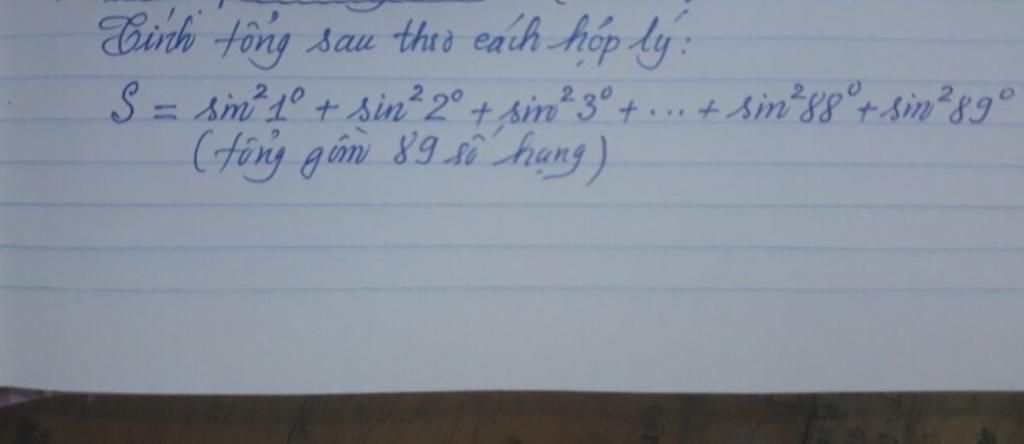 Tính tổng sau theo cách hợp lý:
S = sin²1° + sin²2° + sin²3° + ... + sin²88° + sin²89°
(tổng gồm 89 số hạng)